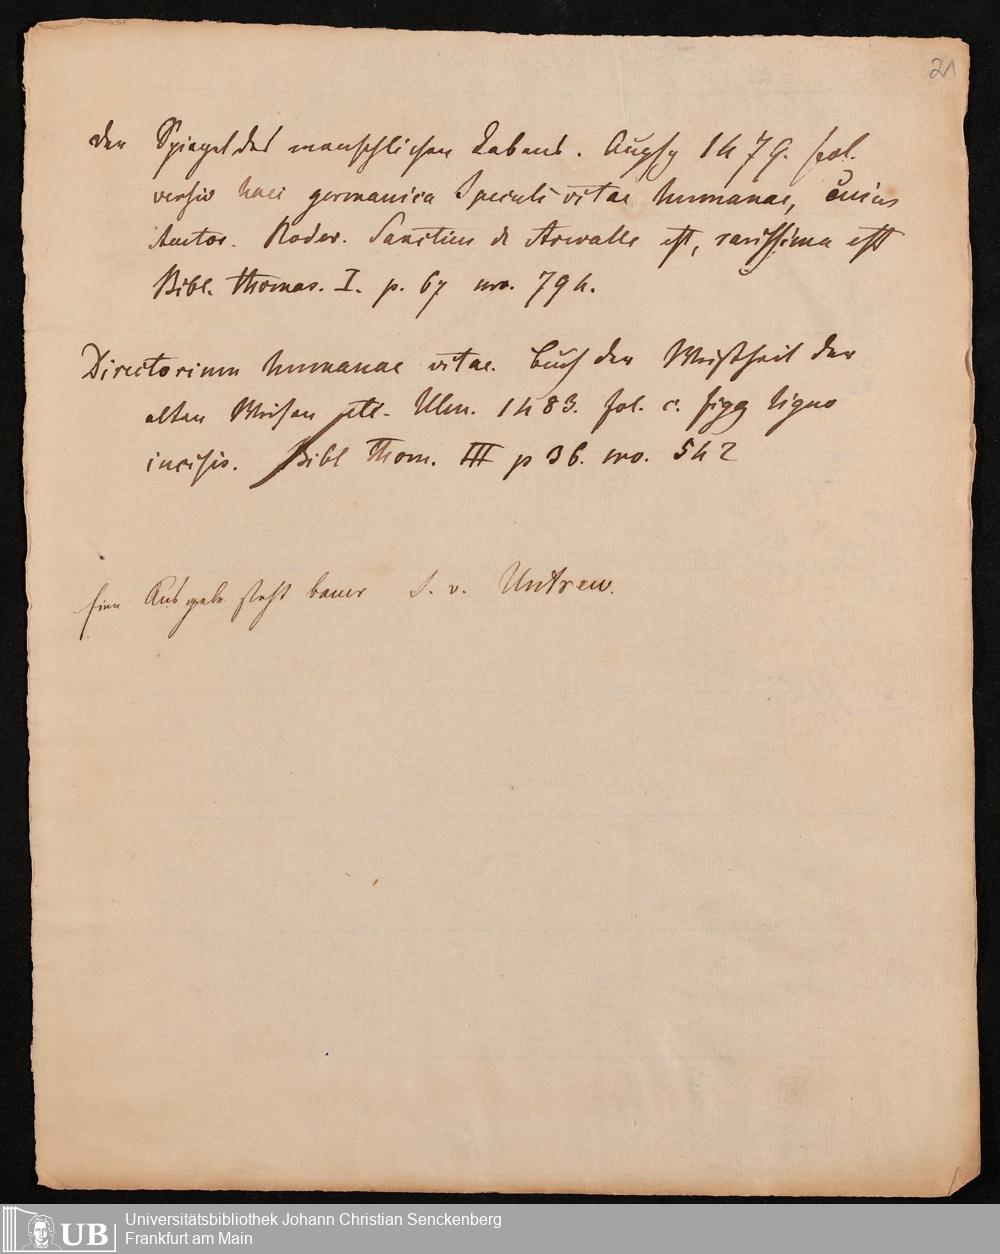 21
der Spiegel des menschlichen Lebens. Augsp 1479. fol.
versio haec germanica Speculi vitae humanae, cuius
Autor. Roder. Sanctius de Arevallo est, rarissima est
Bibl. Thomas. I. p. 67 nro. 794.
Directorium humanae vitae. Buch der Weißheit der
alten Weisen etc. Ulm. 1483. fol. c. figg ligno
incisis. Bibl Thom. III p 36. nro. 542
Eine Ausgabe steht bauer S. v. Untreu.
UB
Universitätsbibliothek Johann Christian Senckenberg
Frankfurt am Main